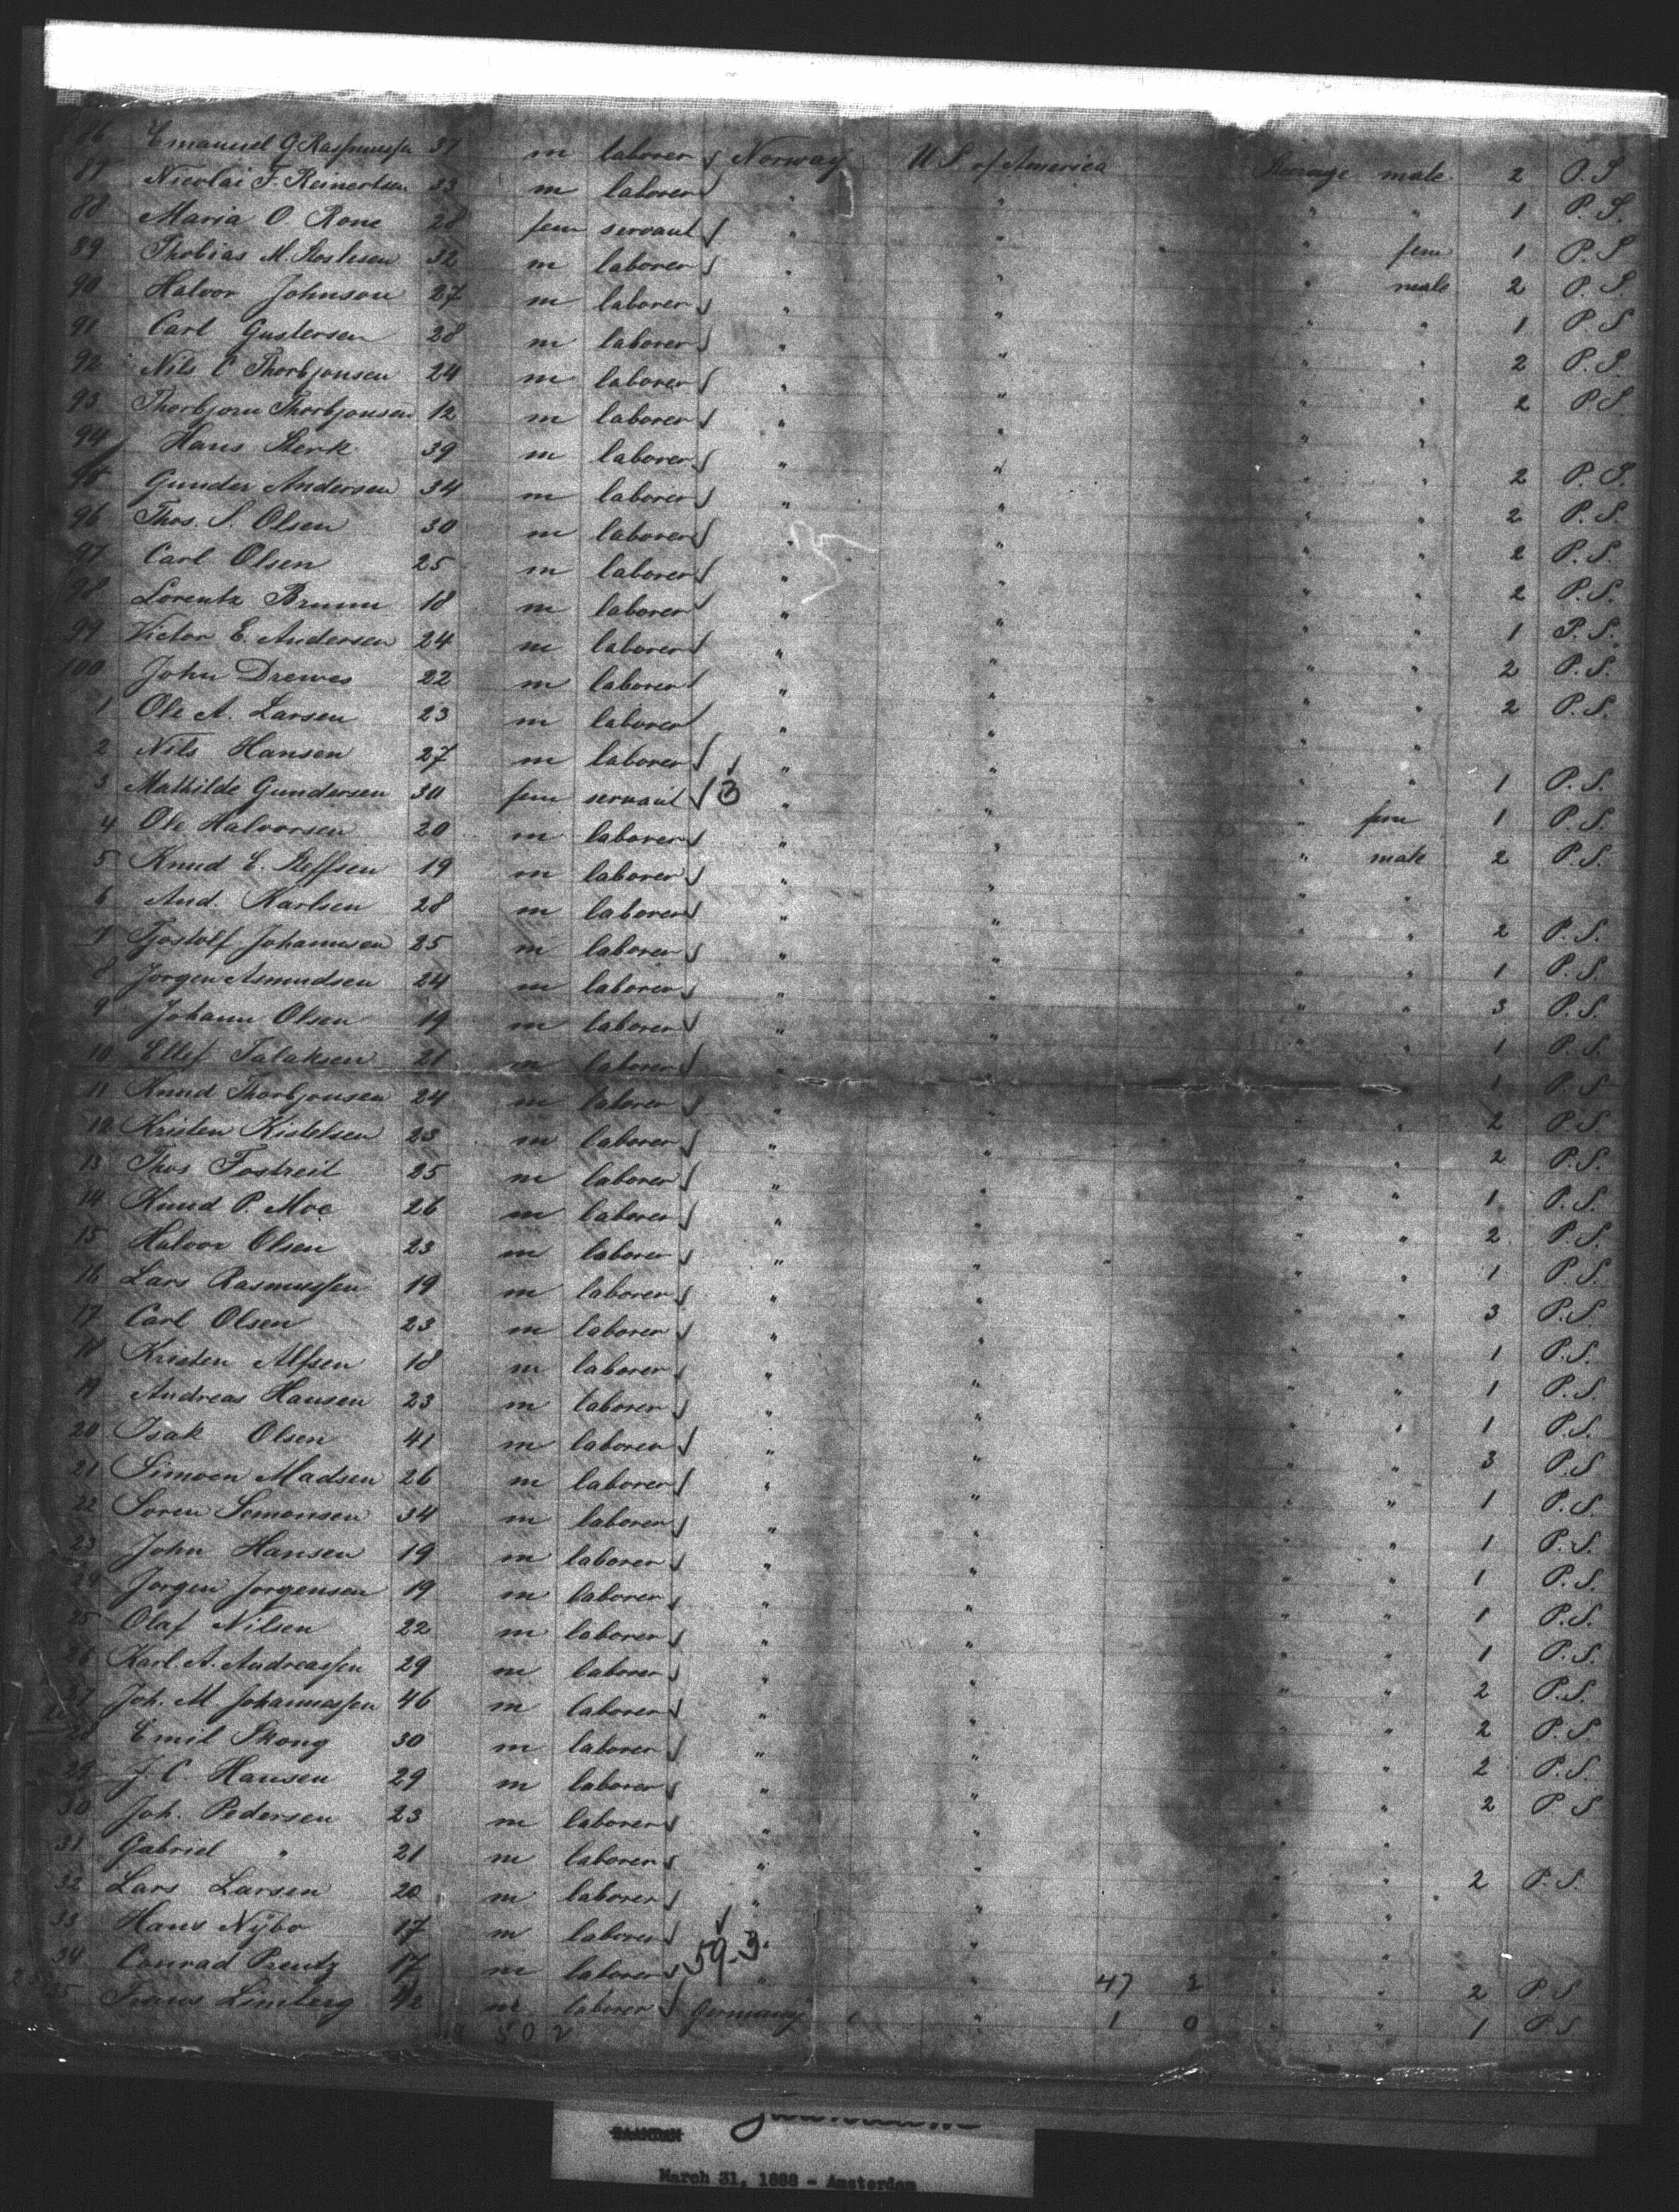 86 Emanuel G. Rasmussen 37 m laborer Norway U.S. of America Steerage male 2 P.S
87 Nicolai F. Reinertsen 33 m laborer " " " " 1 P.S.
88 Maria O. Rone 28 fem servant " " " fem 1 P.S
89 Thobias M. 32 m laborer " " " male 2 P.S.
90 Halvor Johnson 27 m laborer " " " " 1 P.S
91 Carl Gustersen 28 m laborer " " " " 2 P.S.
92 Nils C Thorbjonsen 24 m laborer " " " " 2 P.S.
93 Thorbjorn Thorbjonsen 12 m laborer " " " "
94 Hans Sterk 39 m laborer " " " " 2 P.S.
95 Gunder Andersen 34 m laborer " " " " 2 P.S.
96 Thos. S. Olsen 30 m laborer " " " " 2 P.S.
97 Carl Olsen 25 m laborer " " " " 2 P.S.
98 Lorentz Brunn 18 m laborer " " " " 1 P.S.
99 Victor E. Andersen 24 m laborer " " " " 2 P.S.
100 John Drewes 22 m laborer " " " " 2 P.S.
1 Ole A. Larsen 23 m laborer " " " "
2 Nils Hansen 27 m laborer " " " " 1 P.S.
3 Mathilde Gundersen 30 fem servant 3 " " " fem 1 P.S.
4 Ole Halvorsen 20 m laborer " " " male 2 P.S.
5 Knud E. Steffsen 19 m laborer " " " "
6 And. Karlsen 28 m laborer " " " " 2 P.S.
7 Tjostolf Johannsen 25 m laborer " " " " 1 P.S.
8 Jorgen Asmudsen 24 m laborer " " " " 3 P.S.
9 Johann Olsen 19 m laborer " " " " 1 P.S.
10 Ellef Talaksen 21 m laborer " " " " 1 P.S
11 Knud Thorbjonsen 24 m laborer " " " " 2 P.S.
12 Kristen Kistelsen 23 m laborer " " " " 2 P.S.
13 Thos Fostreit 25 m laborer " " " " 1 P.S.
14 Knud P. Moe 26 m laborer " " " " 2 P.S.
15 Halvor Olsen 23 m laborer " " " " 1 P.S.
16 Lars Rasmussen 19 m laborer " " " " 3 P.S.
17 Carl Olsen 23 m laborer " " " " 1 P.S.
18 Kristen Alfsen 18 m laborer " " " " 1 P.S.
19 Andreas Hansen 23 m laborer " " " " 1 P.S.
20 Isak Olsen 41 m laborer " " " " 3 P.S
21 Simoen Madsen 26 m laborer " " " " 1 P.S.
22 Soren Somonsen 34 m laborer " " " " 1 P.S.
23 John Hansen 19 m laborer " " " " 1 P.S.
24 Jorgen Jorgensen 19 m laborer " " " " 1 P.S.
25 Olaf Nilsen 22 m laborer " " " " 1 P.S.
26 Karl. A. Andreassen 29 m laborer " " " " 2 P.S.
27 Joh. M. Johannessen 46 m laborer " " " " 2 P.S.
28 Emil Skong 30 m laborer " " " " 2 P.S.
29 J. C. Hansen 29 m laborer " " " " 2 P.S
30 Joh. Pedersen 23 m laborer " " " "
31 Gabriel " 21 m laborer " " " " 2 P.S.
32 Lars Larsen 20 m laborer " " " "
33 Hans Nybo 17 m laborer " " " "
34 Conrad Prentz 17 m laborer 59-3 " " 47 2 " " 2 P.S
35 Frans Limberg 42 m laborer Germany " 1 0 " " 1 P.S
50 2
ZAANDAM
March 31, 1888 - Amsterdam